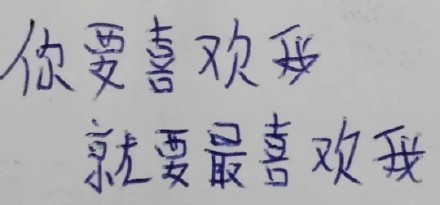 你要喜欢我
就要最喜欢我